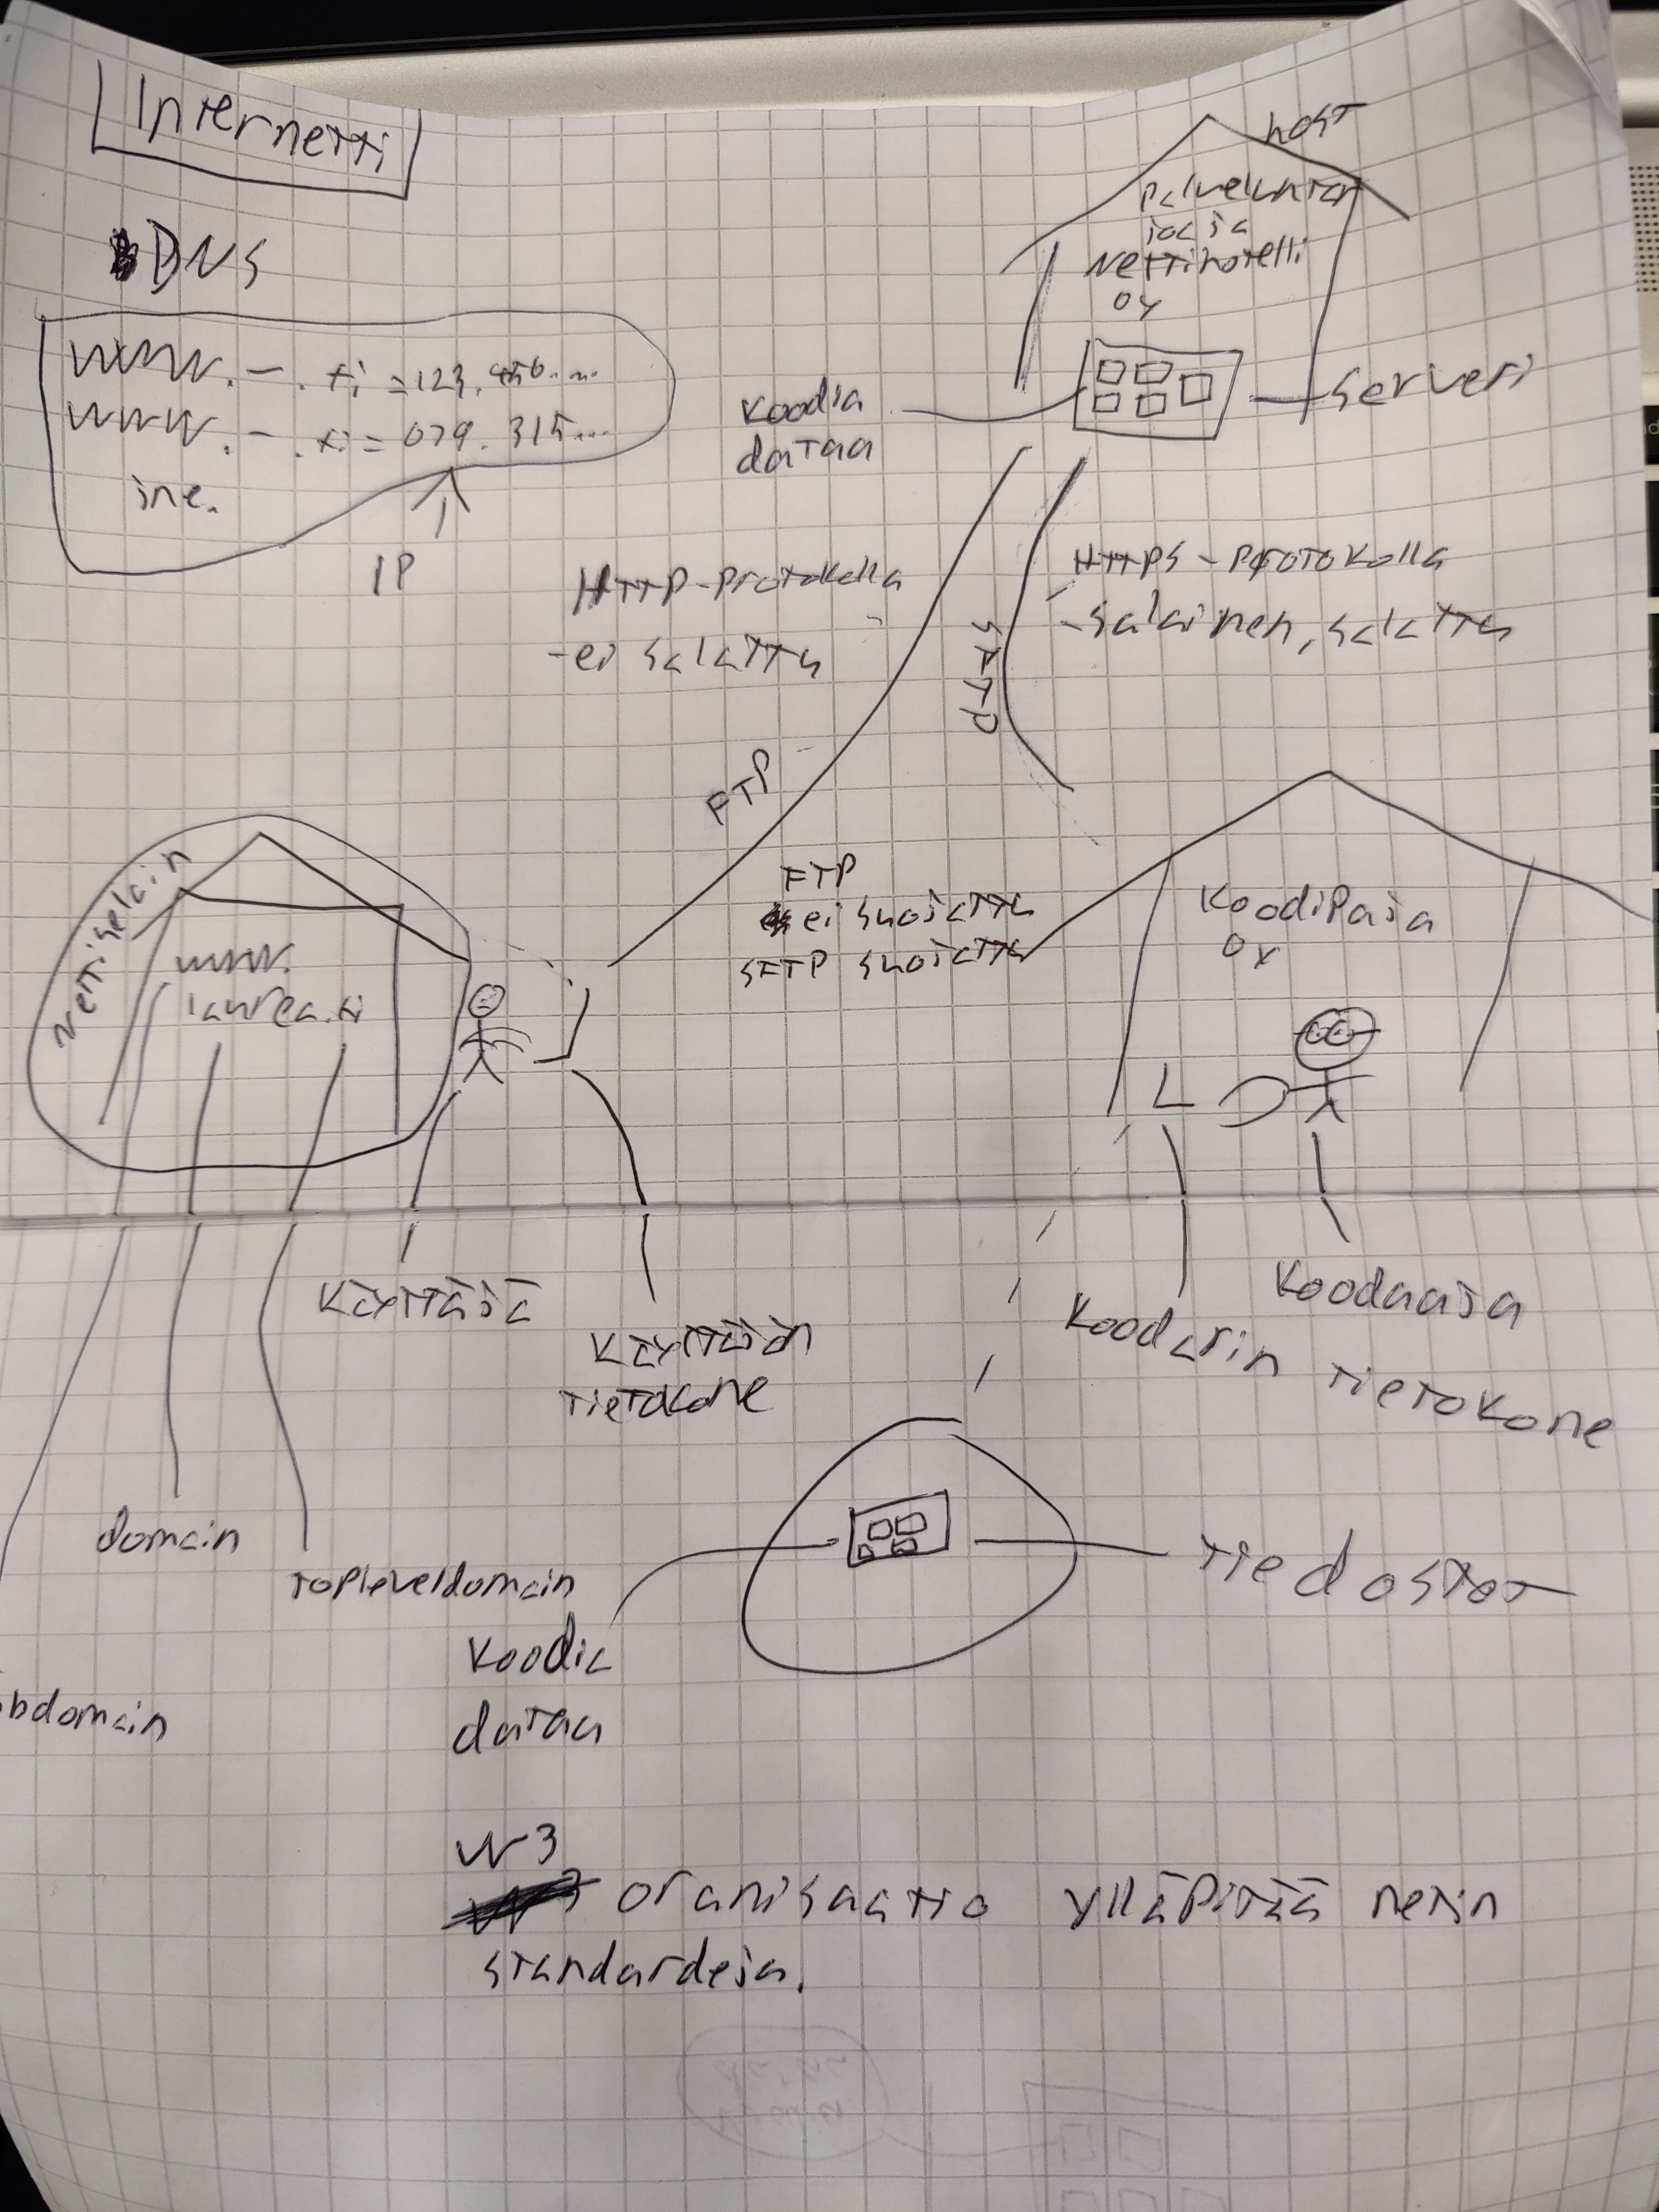 Internetti
DNS
www. - . fi = 123. 456....
www. - . fi = 079. 315....
jne.
IP
host
palvelintar
joaja
Nettihotelli
oy
serveri
koodia
dataa
HTTP-protokolla
-ei salattu
HTTPS-protokolla
-salainen, salattu
SFTP
FTP
FTP
ei suojattu
SFTP suojattu
Nettiselain
www.
laurea.fi
KoodiPaja
Oy
Käyttäjä
Käyttäjän
tietokone
Koodarin tietokone
Koodaaja
domain
topleveldomain
bdomain
Koodia
dataa
Tiedostot
W3
oranisaatio ylläpitää netin
standardeja.